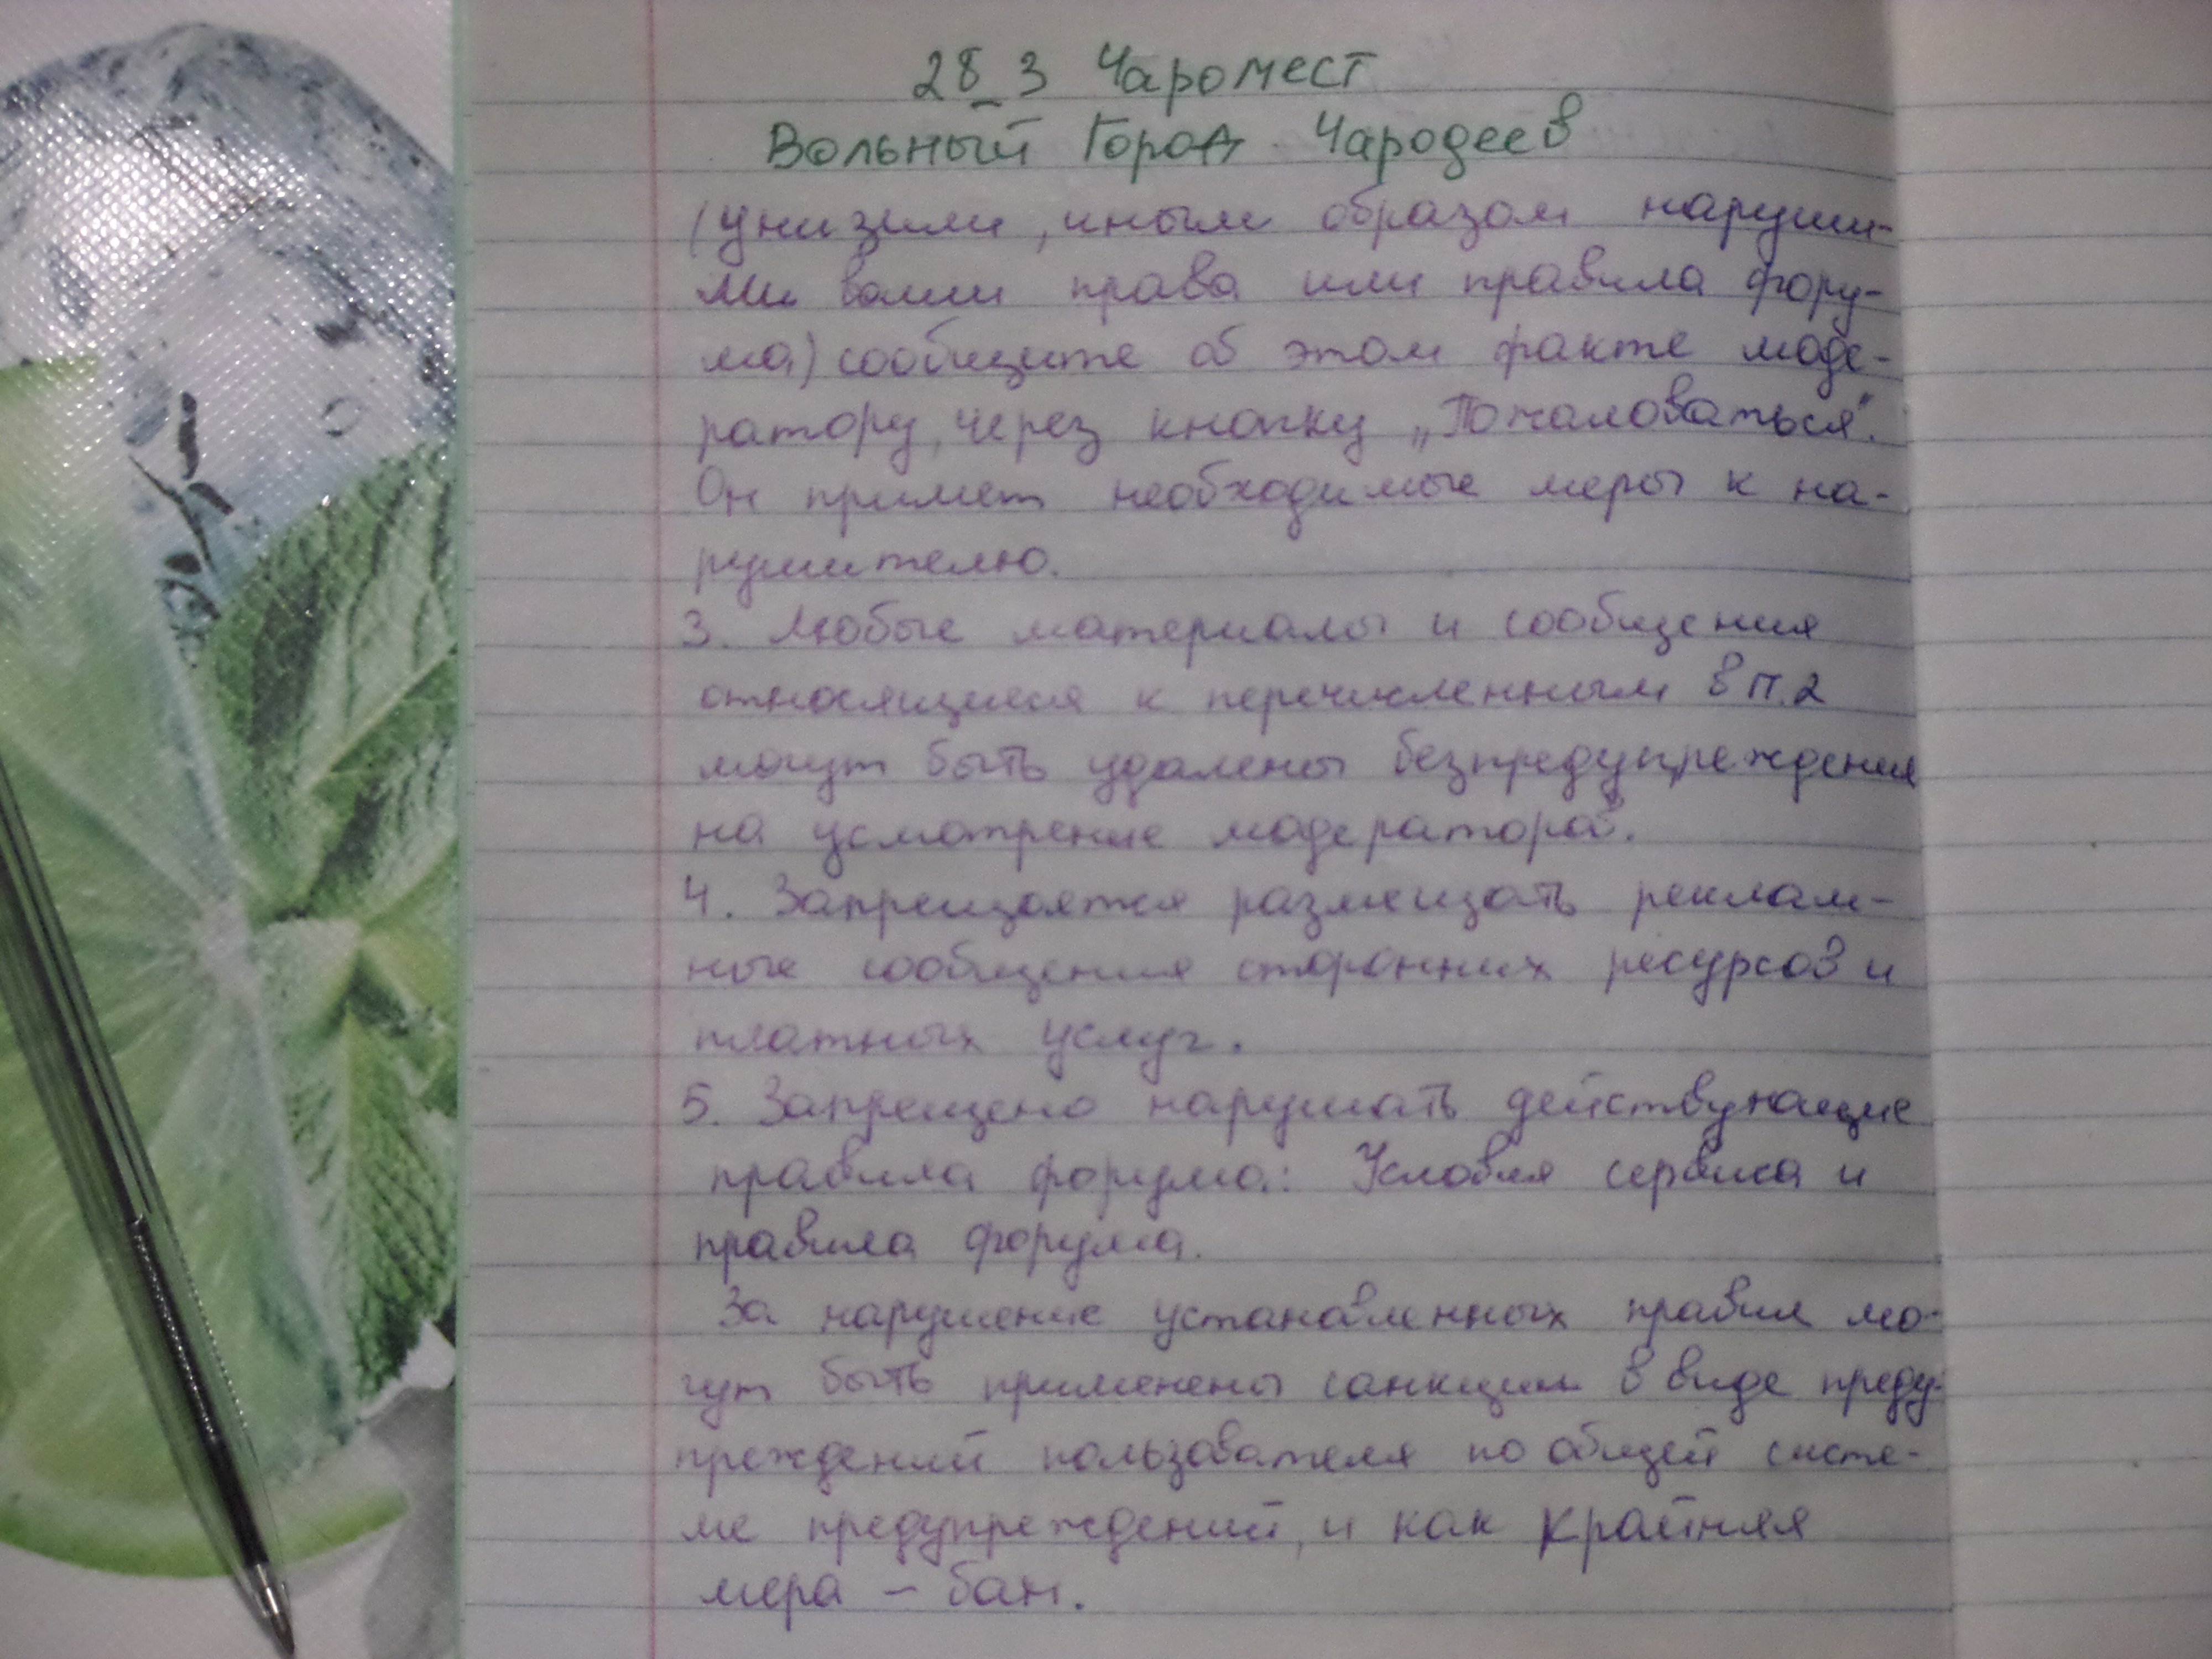 28_3 Чаромест
Вольный Город Чародеев
(унизили, иным образом наруши-
ли ваши права или правила фору-
ма) сообщите об этом факте моде-
ратору, через кнопку „Пожаловаться".
Он примет необходимые меры к на-
рушителю.
3. Любые материалы и сообщения
относящиеся к перечисленным в п.2
могут быть удалены безпредупреждения
на усмотрение модератора.
4. Запрещается размещать реклам-
ные сообщения сторонних ресурсов и
платных услуг.
5. Запрещено нарушать действующие
правила форума: Условия сервиса и
правила форума.
За нарушение установленных правил мо-
гут быть применены санкции в виде преду-
преждений пользователя по общей систе-
ме предупреждений, и как крайняя
мера – бан.